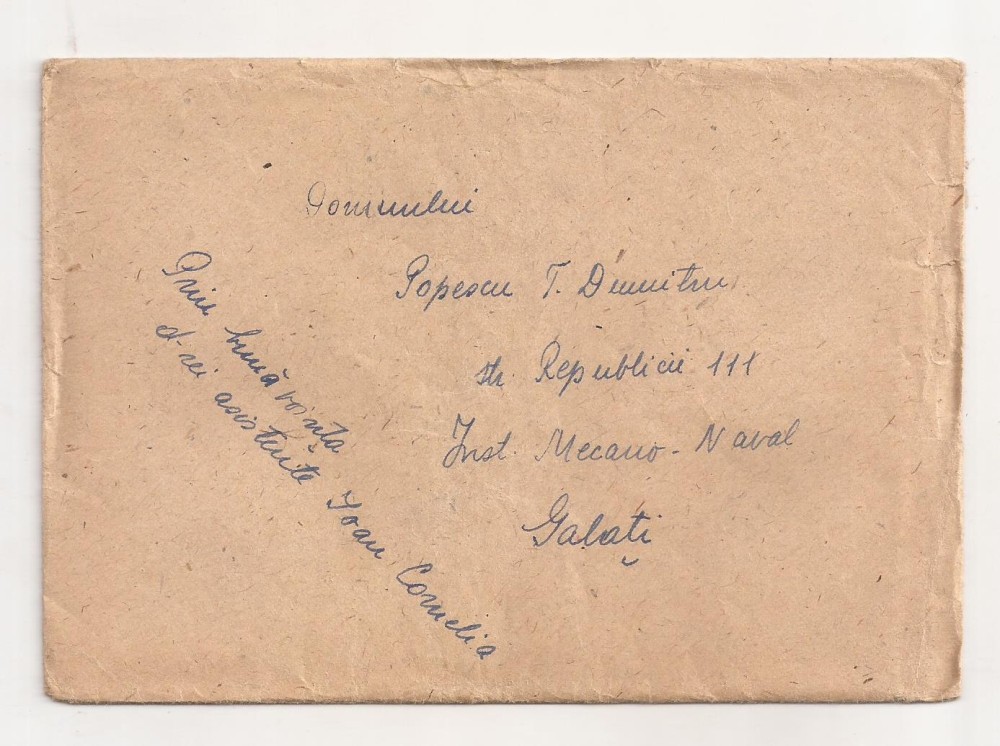 Domnului
Popescu T. Dumitru
str. Republicii 111
Inst. Mecano-Naval
Galați
Prin bună voința
d-rei asistente Ioan Cornelia